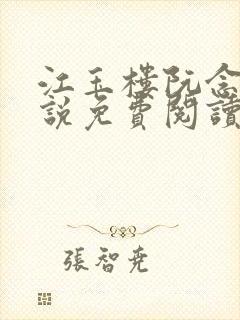 江玉樓阮念
說免費閱讀
張智尭